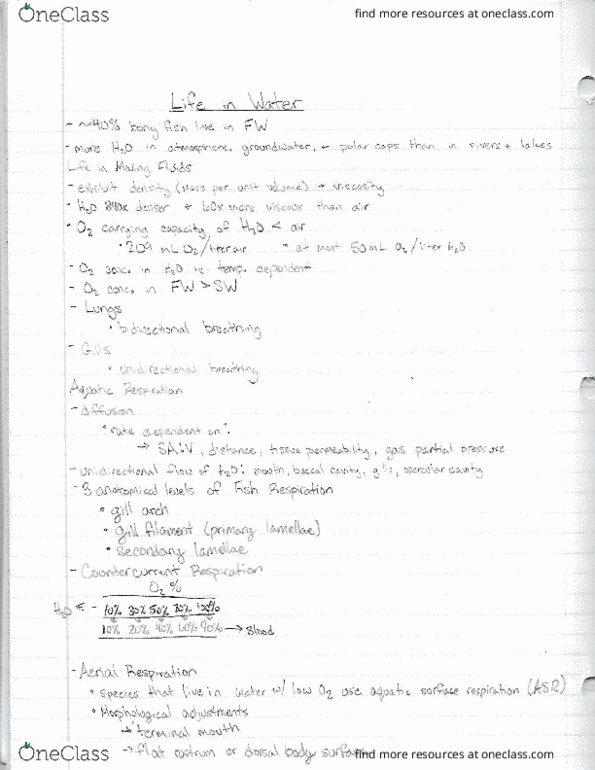 OneClass
find more resources at oneclass.com
Life in Water
- ~40% bony fish live in FW
- more H2O in atmosphere, groundwater, + polar caps than in rivers + lakes
Life in Moving Fluids
- exhibit density (mass per unit volume) + viscosity
- H2O 840x denser + 60x more viscous than air
- O2 carrying capacity of H2O < air
• 209 mL O2/liter air - at most 50 mL O2/liter H2O
- O2 conc. in H2O is temp. dependent
- O2 conc. in FW > SW
- Lungs
• bidirectional breathing
- Gills
• unidirectional breathing
Aquatic Respiration
- diffusion
• rate dependent on:
→ SA:V, distance, tissue permeability, gas partial pressure
- unidirectional flow of H2O: mouth, buccal cavity, gills, opercular cavity
- 3 anatomical levels of Fish Respiration
• gill arch
• gill filament (primary lamellae)
• secondary lamellae
- Countercurrent Respiration
O2 %
H2O ← - 10% 30% 50% 70% 100%
10% 20% 40% 60% 90% → Blood
- Aerial Respiration
• species that live in water w/ low O2 use aquatic surface respiration (ASR)
• Morphological adjustments
→ terminal mouth
→ flat rostrum or dorsal body surface
OneClass
find more resources at oneclass.com